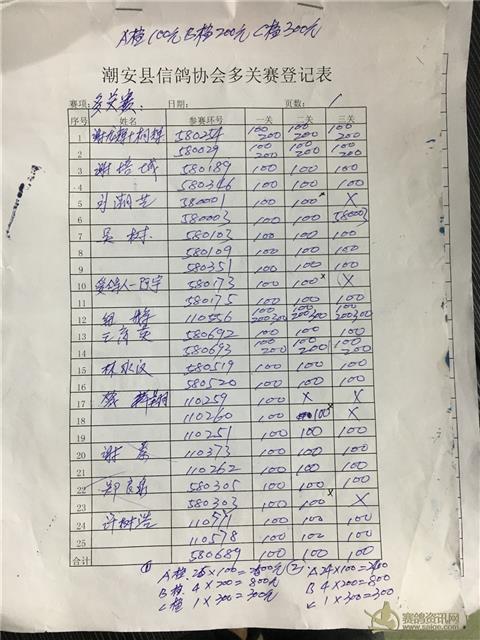 A档100元 B档200元 C档300元
潮安县信鸽协会多关赛登记表
赛项: 多关赛. 日期: 页数: 1
序号 姓名 参赛环号 一关 二关 三关
1 580254 100 200 100 200 100 200
2 580029 100 200 100 200 100 200
3 谢培城 580189 100 100 100
4 580346 100 100 100
5 580001 100 100× ×
6 580003 100 100 580003
7 吴树 580103 100 100 100
8 580109 100 100 100
9 580351 100 100 100
10 爱鸽人一阿宇 580173 100 100× ×
11 580175 100 100 100
12 110556 100 200 300 100 200 300 100 200 300
13 580692 100 100 100
14 580693 100 200 100 200 100 200
15 林水汉 580519 100 100 100
16 580520 100 100 100
17 110259 100 × ×
18 110260 100 100× ×
19 110251 100 100 100
20 谢 110373 100 100 100
21 110262 100 100 100
22 郑良 580305 100 100 100
23 580303 100 100× ×
24 许树浩 110571 100 100 100
25 110578 100 100 100
合计 580689 100 100 100
① A档. 26×100=2600元 ② A24×100=2400
B档. 4×200=800元 B 4×200=800
C档 1×300=300元 C 1×300=300
赛鸽资讯网
www.saige.com